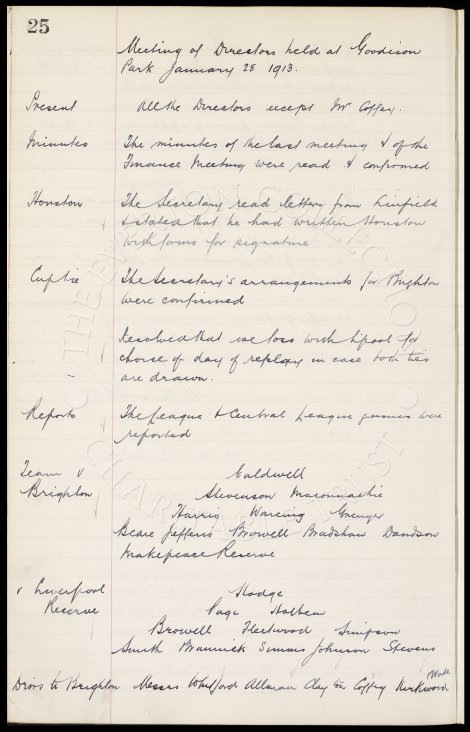 25
Meeting of Directors held at Goodison
Park January 28 1913.
Present All the Directors except Mr Coffey.
Minutes The minutes of the last meeting & of the
Finance Meeting were read & confirmed
Houston The Secretary read letters from Linfield
& stated that he had written Houston
with forms for signature
Cup tie The Secretary's arrangements for Brighton
were confirmed
Resolved that we toss with Lpool for
choice of day of replay in case both ties
are drawn.
Reports The League & Central League games were
reported
Team v Caldwell
Brighton Stevenson Maconnachie
Harris Wareing Grenyer
Beare Jefferis Browell Bradshaw Davidson
Makepeace Reserve
v Liverpool Hodge
Reserve Page Holbem
Browell Fleetwood Simpson
Smith Brannick Simms Johnson Stevens
Made
Dirors to Brighton Messrs Whitford Allman Clayton Coffey Kirkwood
THE EVERTON COLLECTION
CHARITABLE TRUST